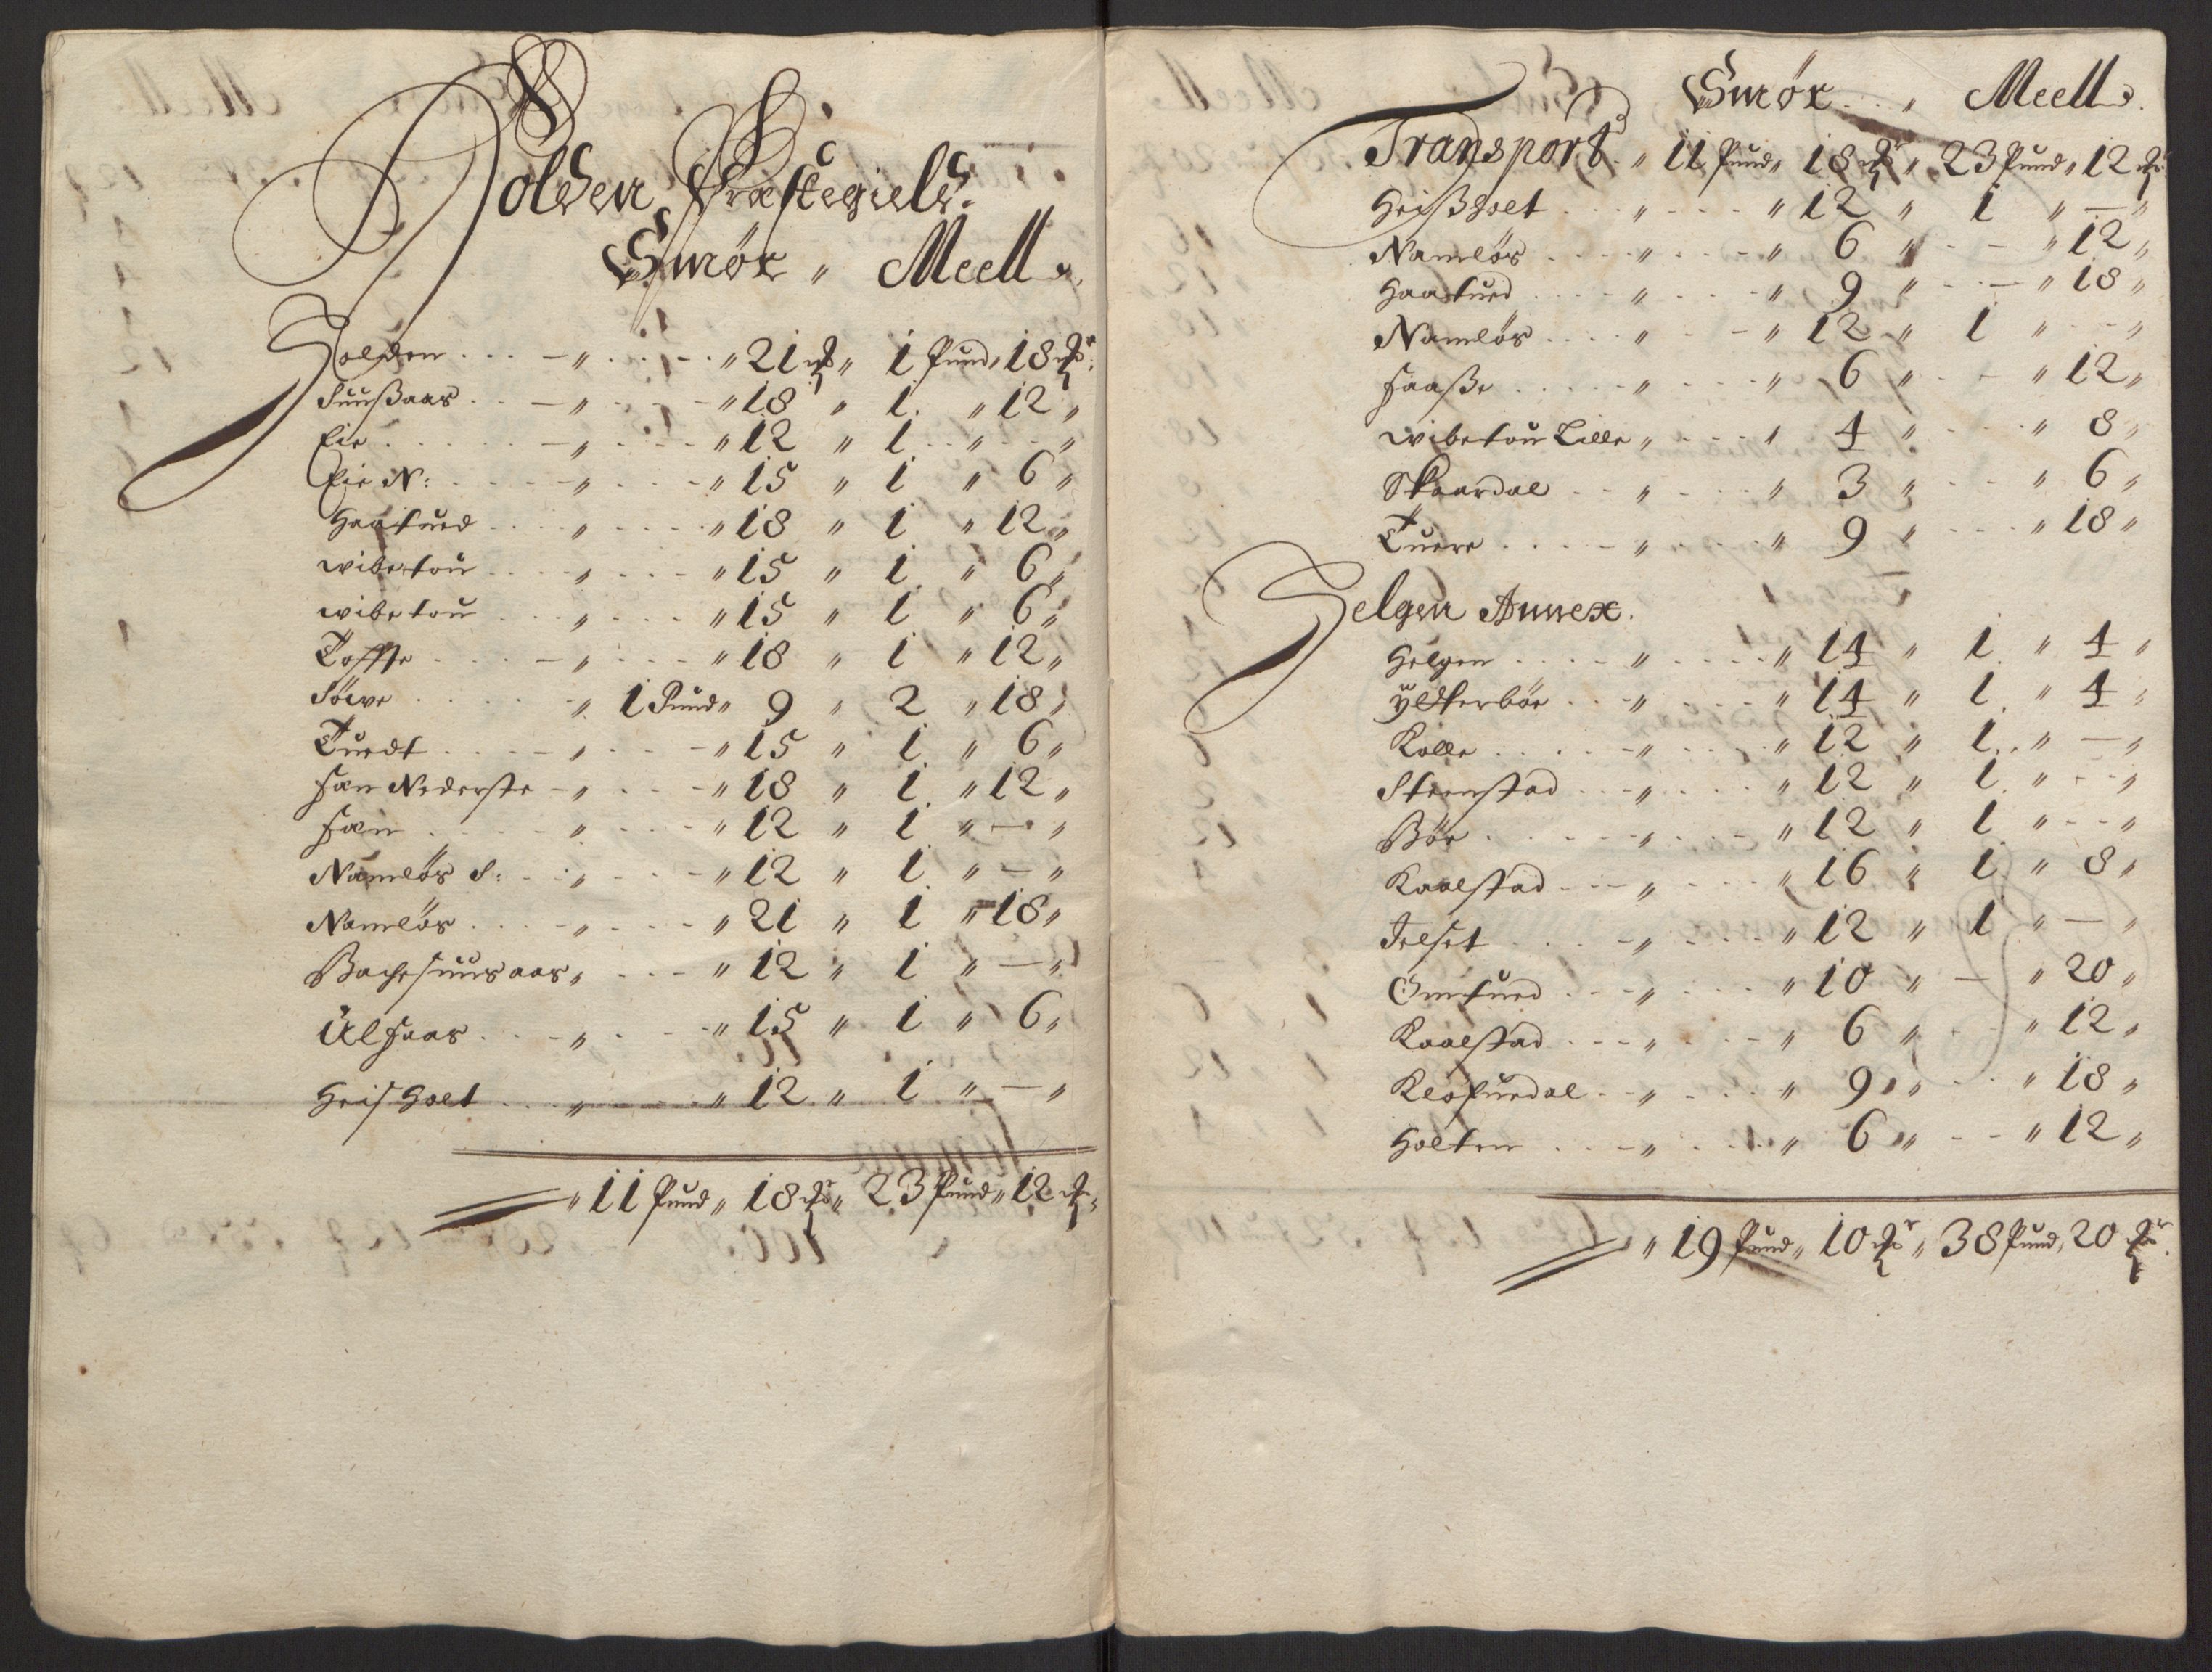 Holden Præstegield.
Smör " Meell
Holden " " 21 " 1 Pund " 18
Suußaas " " 18 " 1 " 12 "
Eie " " 12 " 1 " "
Eie N: " " 15 " 1 " 6 "
Haatued " " 18 " 1 " 12 "
wibetou " " 15 " 1 " 6 "
wibetou " " 15 " 1 " 6 "
Toffte " " 18 " 1 " 12 "
Söwe " 1 Pund " 9 " 2 " 18 "
Tuedt " " 15 " 1 " 6 "
fæn Nederste " " 18 " 1 " 12 "
fæn " " 12 " 1 " — "
Namlös S: " " 12 " 1 " — "
Namlös " " 21 " 1 " 18 "
Bachesuusaas " " 12 " 1 " — "
Ulsaas " " 15 " 1 " 6 "
Heisholt " " 12 " 1 " — "
" 11 Pund " 18 " 23 Pund " 12
Smör " Meell
Transport " 11 Pund " 18 " 23 Pund " 12
Heißholt " " 12 " 1 " — "
Namlös " " 6 " — " 12 "
Haatued " " 9 " — " 18 "
Namlös " " 12 " 1 " "
faaße " " 6 " — " 12 "
wibetou Lille " " 4 " " 8 "
Skaardal " " 3 " " 6 "
Tuere " " 9 " " 18 "
Helgen Annex.
Helgen " " 14 " 1 " 4 "
Ytterböe " " 14 " 1 " 4 "
Kolle " " 12 " 1 " — "
Steenstad " " 12 " 1 " "
Böe " " 12 " 1 " "
Kaalstad " " 16 " 1 " 8 "
Jelset " " 12 " 1 " — "
Omtued " " 10 " — " 20 "
Kaalstad " " 6 " " 12 "
Kleofuedal " " 9 " " 18 "
Holten " " 6 " " 12 "
" 19 Pund " 10 " 38 Pund " 20